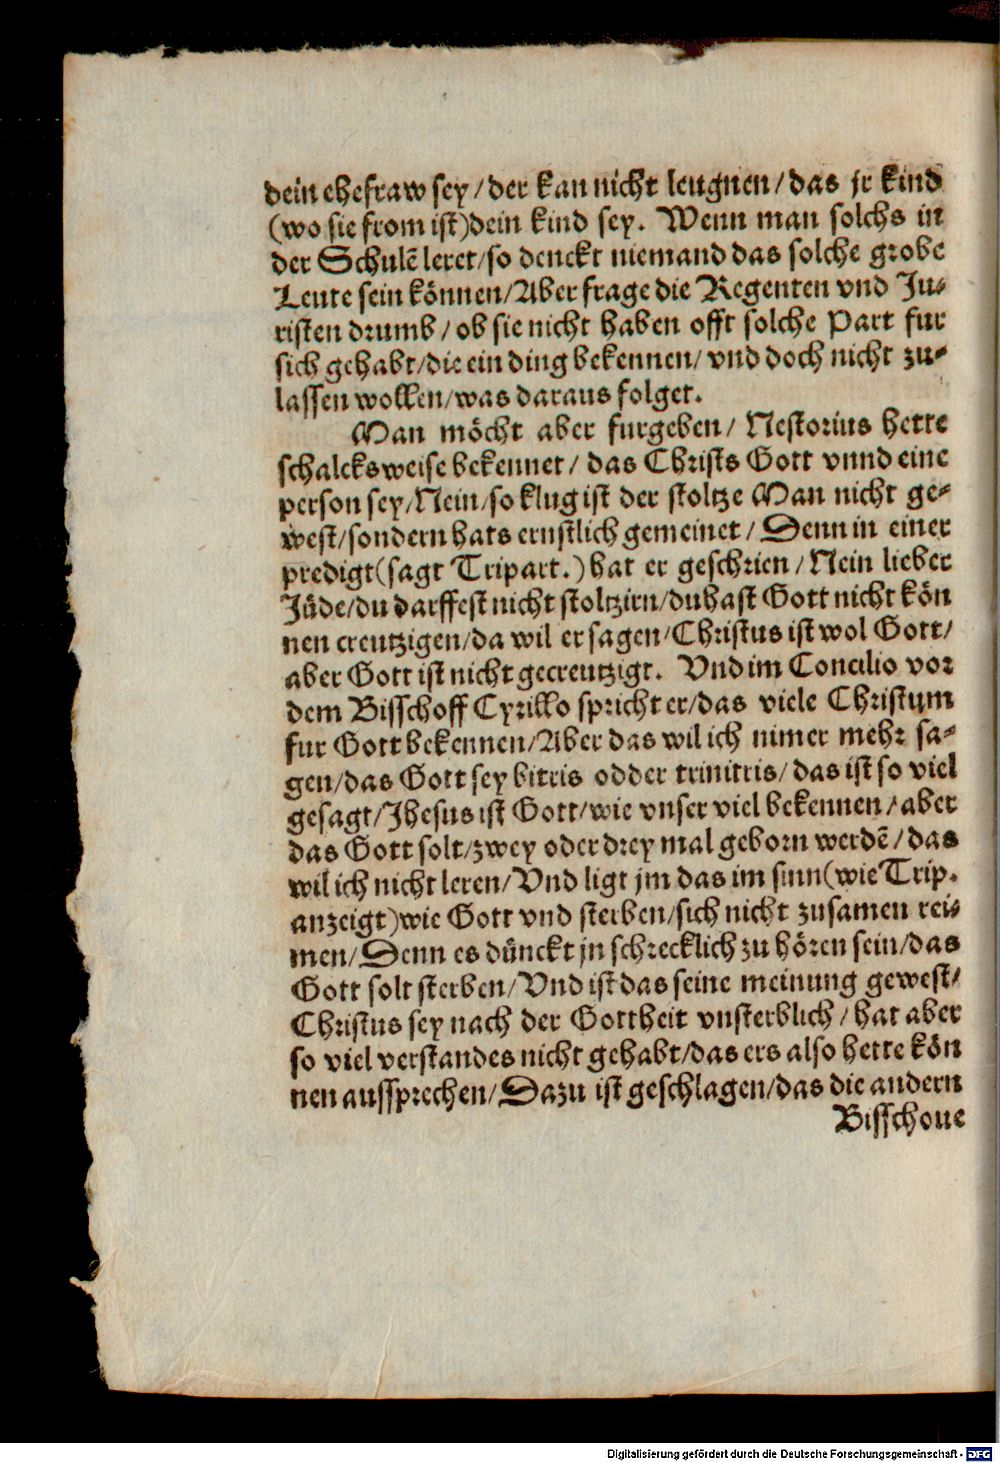 dein ehefraw sey/der kan nicht leugnen/das jr kind
(wo sie from ist)dein kind sey. Wenn man solchs in
der Schulē leret/so denckt niemand das solche grobe
Leute sein können/Aber frage die Regenten vnd Ju⸗
risten drumb/ob sie nicht haben offt solche Part fur
sich gehabt/die ein ding bekennen/vnd doch nicht zu⸗
lassen wollen/was daraus folget.
Man möcht aber furgeben/Nestorius hette
schalcksweise bekennet/das Christs Gott vnnd eine
person sey/Nein/so klug ist der stoltze Man nicht ge⸗
west/sondern hats ernstlich gemeinet/Denn in einer
predigt(sagt Tripart.)hat er geschrien/Nein lieber
Jüde/du darffest nicht stoltzirn/du hast Gott nicht kön
nen creutzigen/da wil er sagen/Christus ist wol Gott/
aber Gott ist nicht gecreutzigt. Vnd im Concilio vor
dem Bisschoff Cyrillo spricht er/das viele Christum
fur Gott bekennen/Aber das wil ich nimer mehr sa⸗
gen/das Gott sey bitris odder trinitris/das ist so viel
gesagt/Jhesus ist Gott/wie vnser viel bekennen/aber
das Gott solt/zwey oder drey mal geborn werdē/das
wil ich nicht leren/Vnd ligt jm das im sinn(wie Trip.
anzeigt)wie Gott vnd sterben/sich nicht zusamen rei⸗
men/Denn es dünckt jn schrecklich zu hören sein/das
Gott solt sterben/Vnd ist das seine meinung gewest/
Christus sey nach der Gottheit vnsterblich/hat aber
so viel verstandes nicht gehabt/das ers also hette kön
nen aussprechen/Dazu ist geschlagen/das die andern
Bisschoue
Digitalisierung gefördert durch die Deutsche Forschungsgemeinschaft - DFG